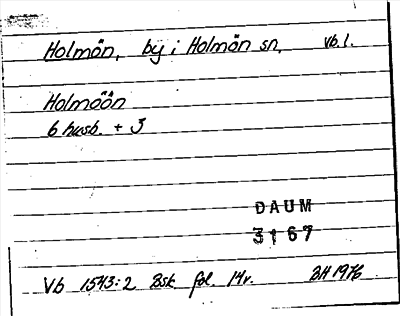 Holmön, by i Holmön sn, Vb.l.
Holmöön
6 husb. + 3
DAUM
3167
Vb 1543:2 Bsk fol. 14v. BH 1976